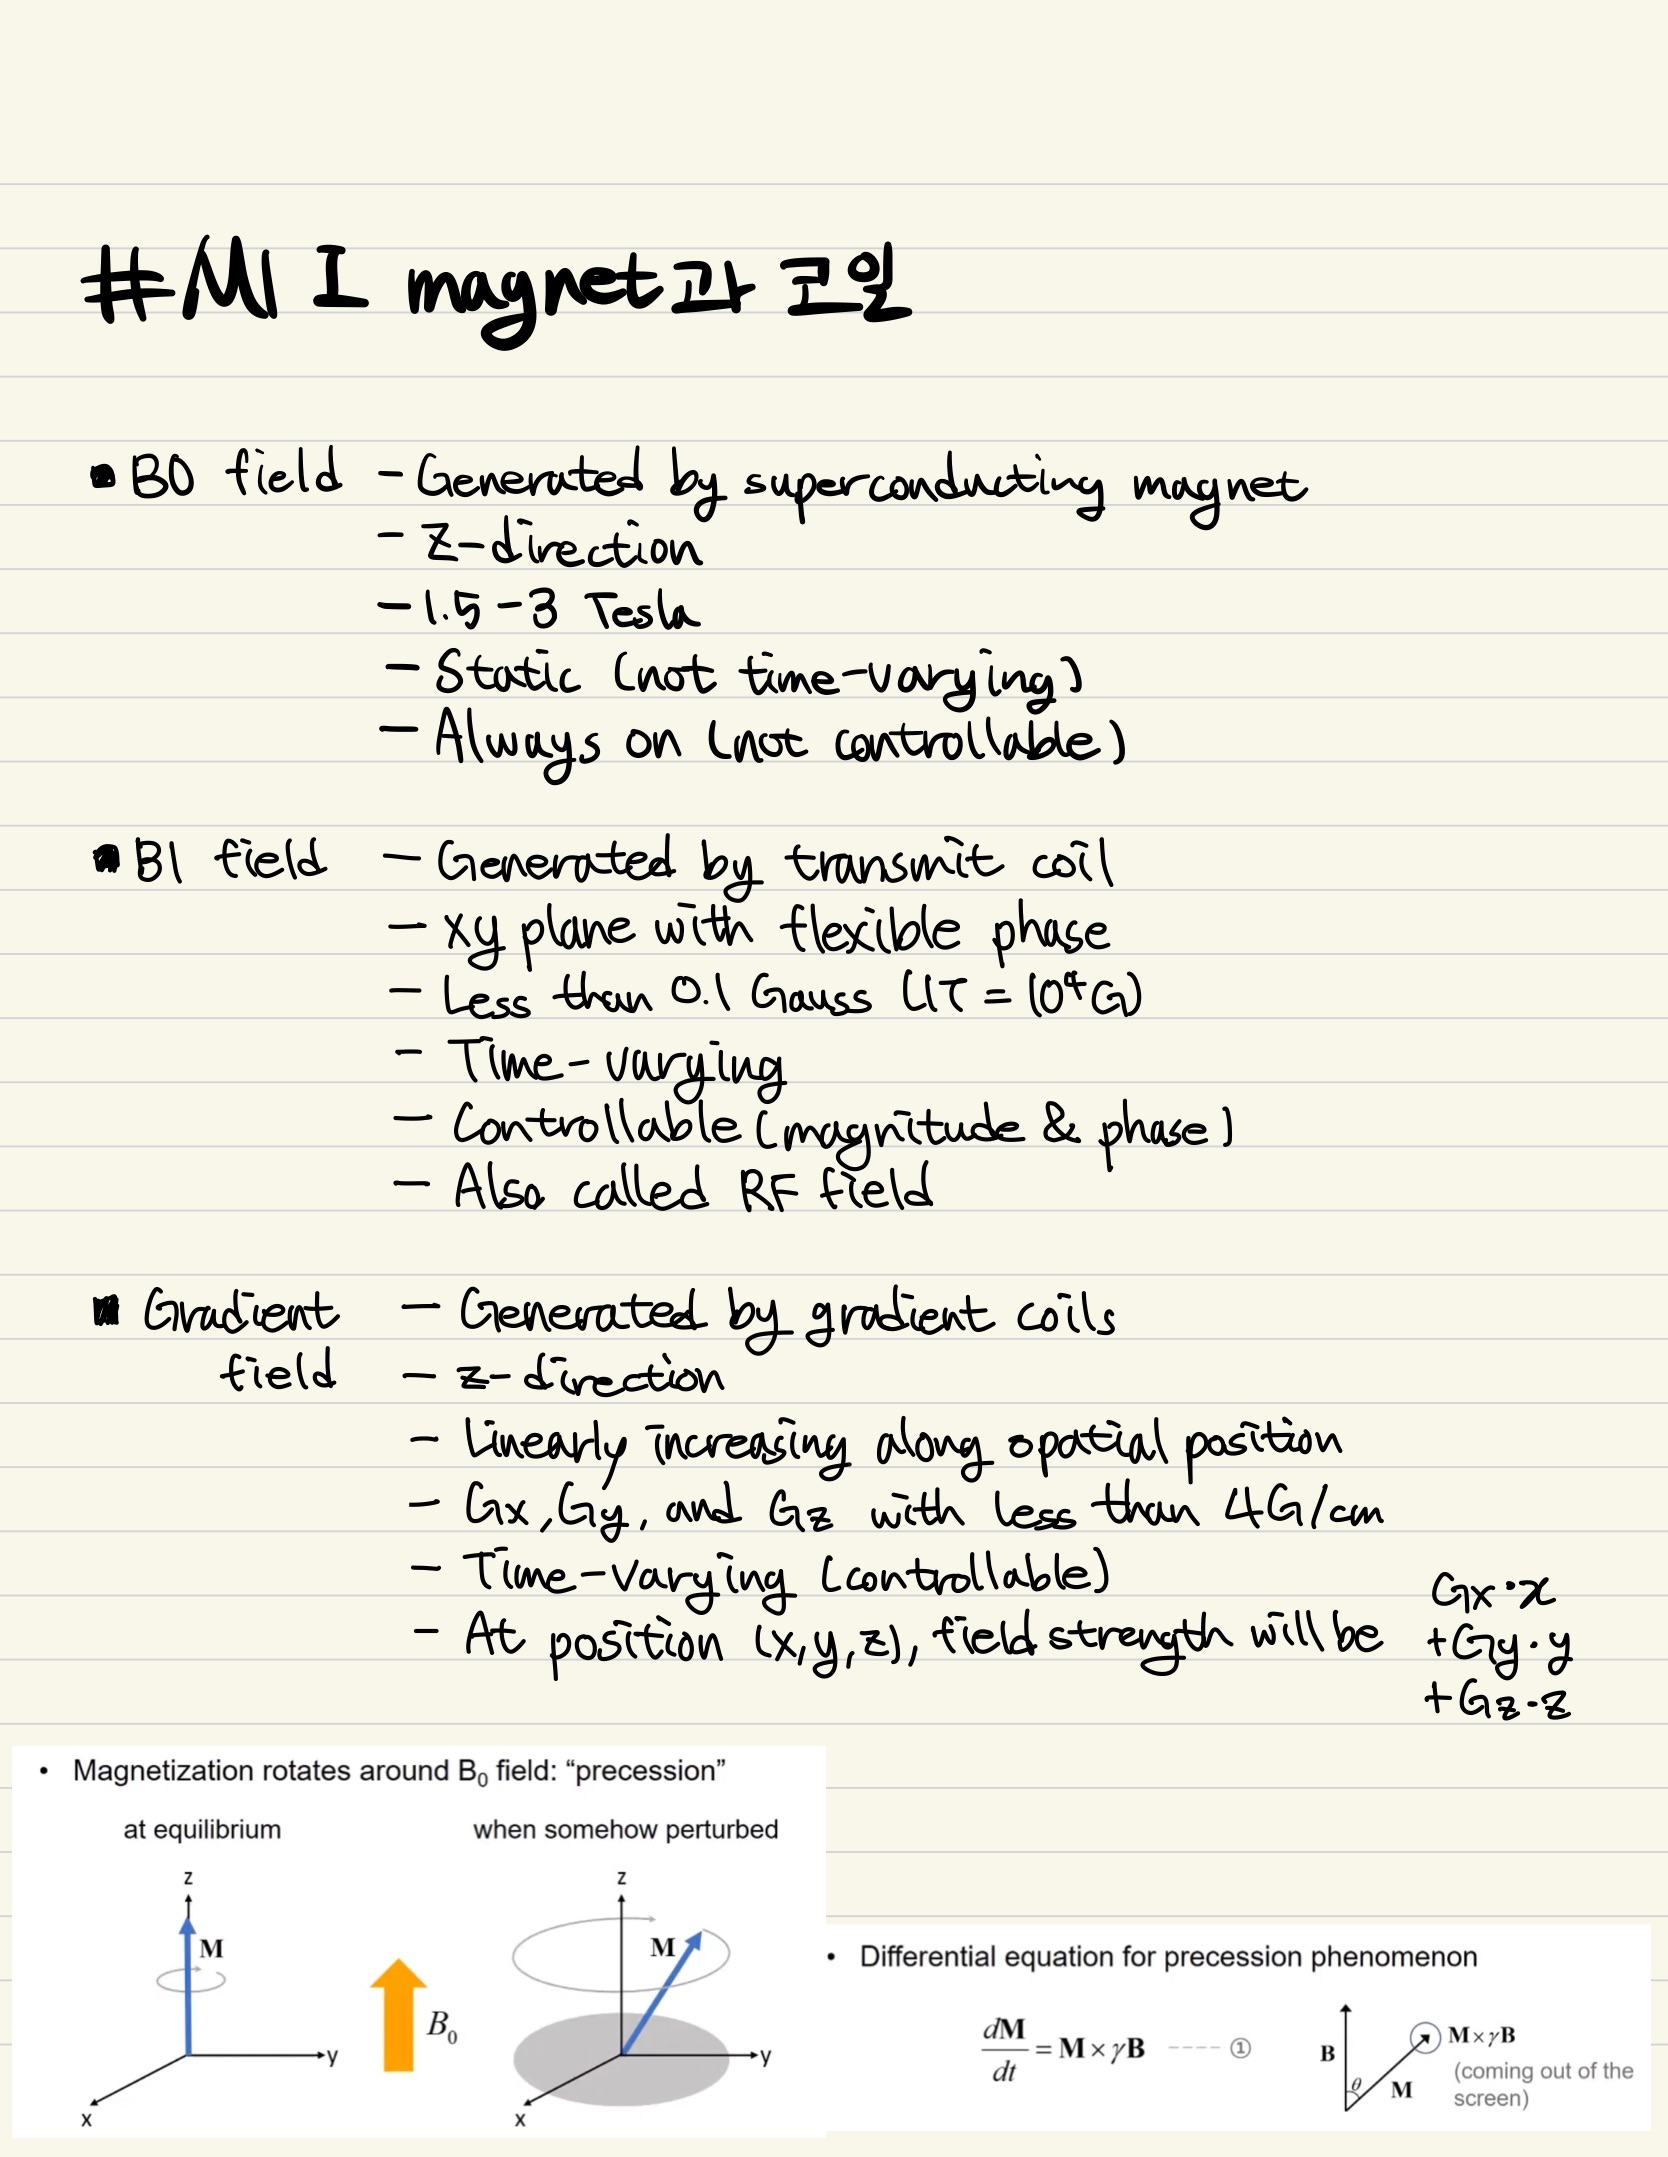 #MI I magnet과 코일
• B0 field - Generated by superconducting magnet
- Z-direction
- 1.5-3 Tesla
- Static (not time-varying)
- Always on (not controllable)
• B1 field - Generated by transmit coil
- xy plane with flexible phase
- Less than 0.1 Gauss (1T = 10⁴G)
- Time-varying
- Controllable (magnitude & phase)
- Also called RF field
• Gradient - Generated by gradient coils
field - z-direction
- Linearly increasing along spatial position
- Gx, Gy, and Gz with less than 4G/cm
- Time-varying (controllable)
- At position (x,y,z), field strength will be Gx·x
+Gy·y
+Gz·z
• Magnetization rotates around B₀ field: “precession”
at equilibrium
when somehow perturbed
z
M
y
x
B₀
z
M
y
x
• Differential equation for precession phenomenon
dM/dt = M×γB ---- ①
B
θ
M
M×γB
(coming out of the
screen)